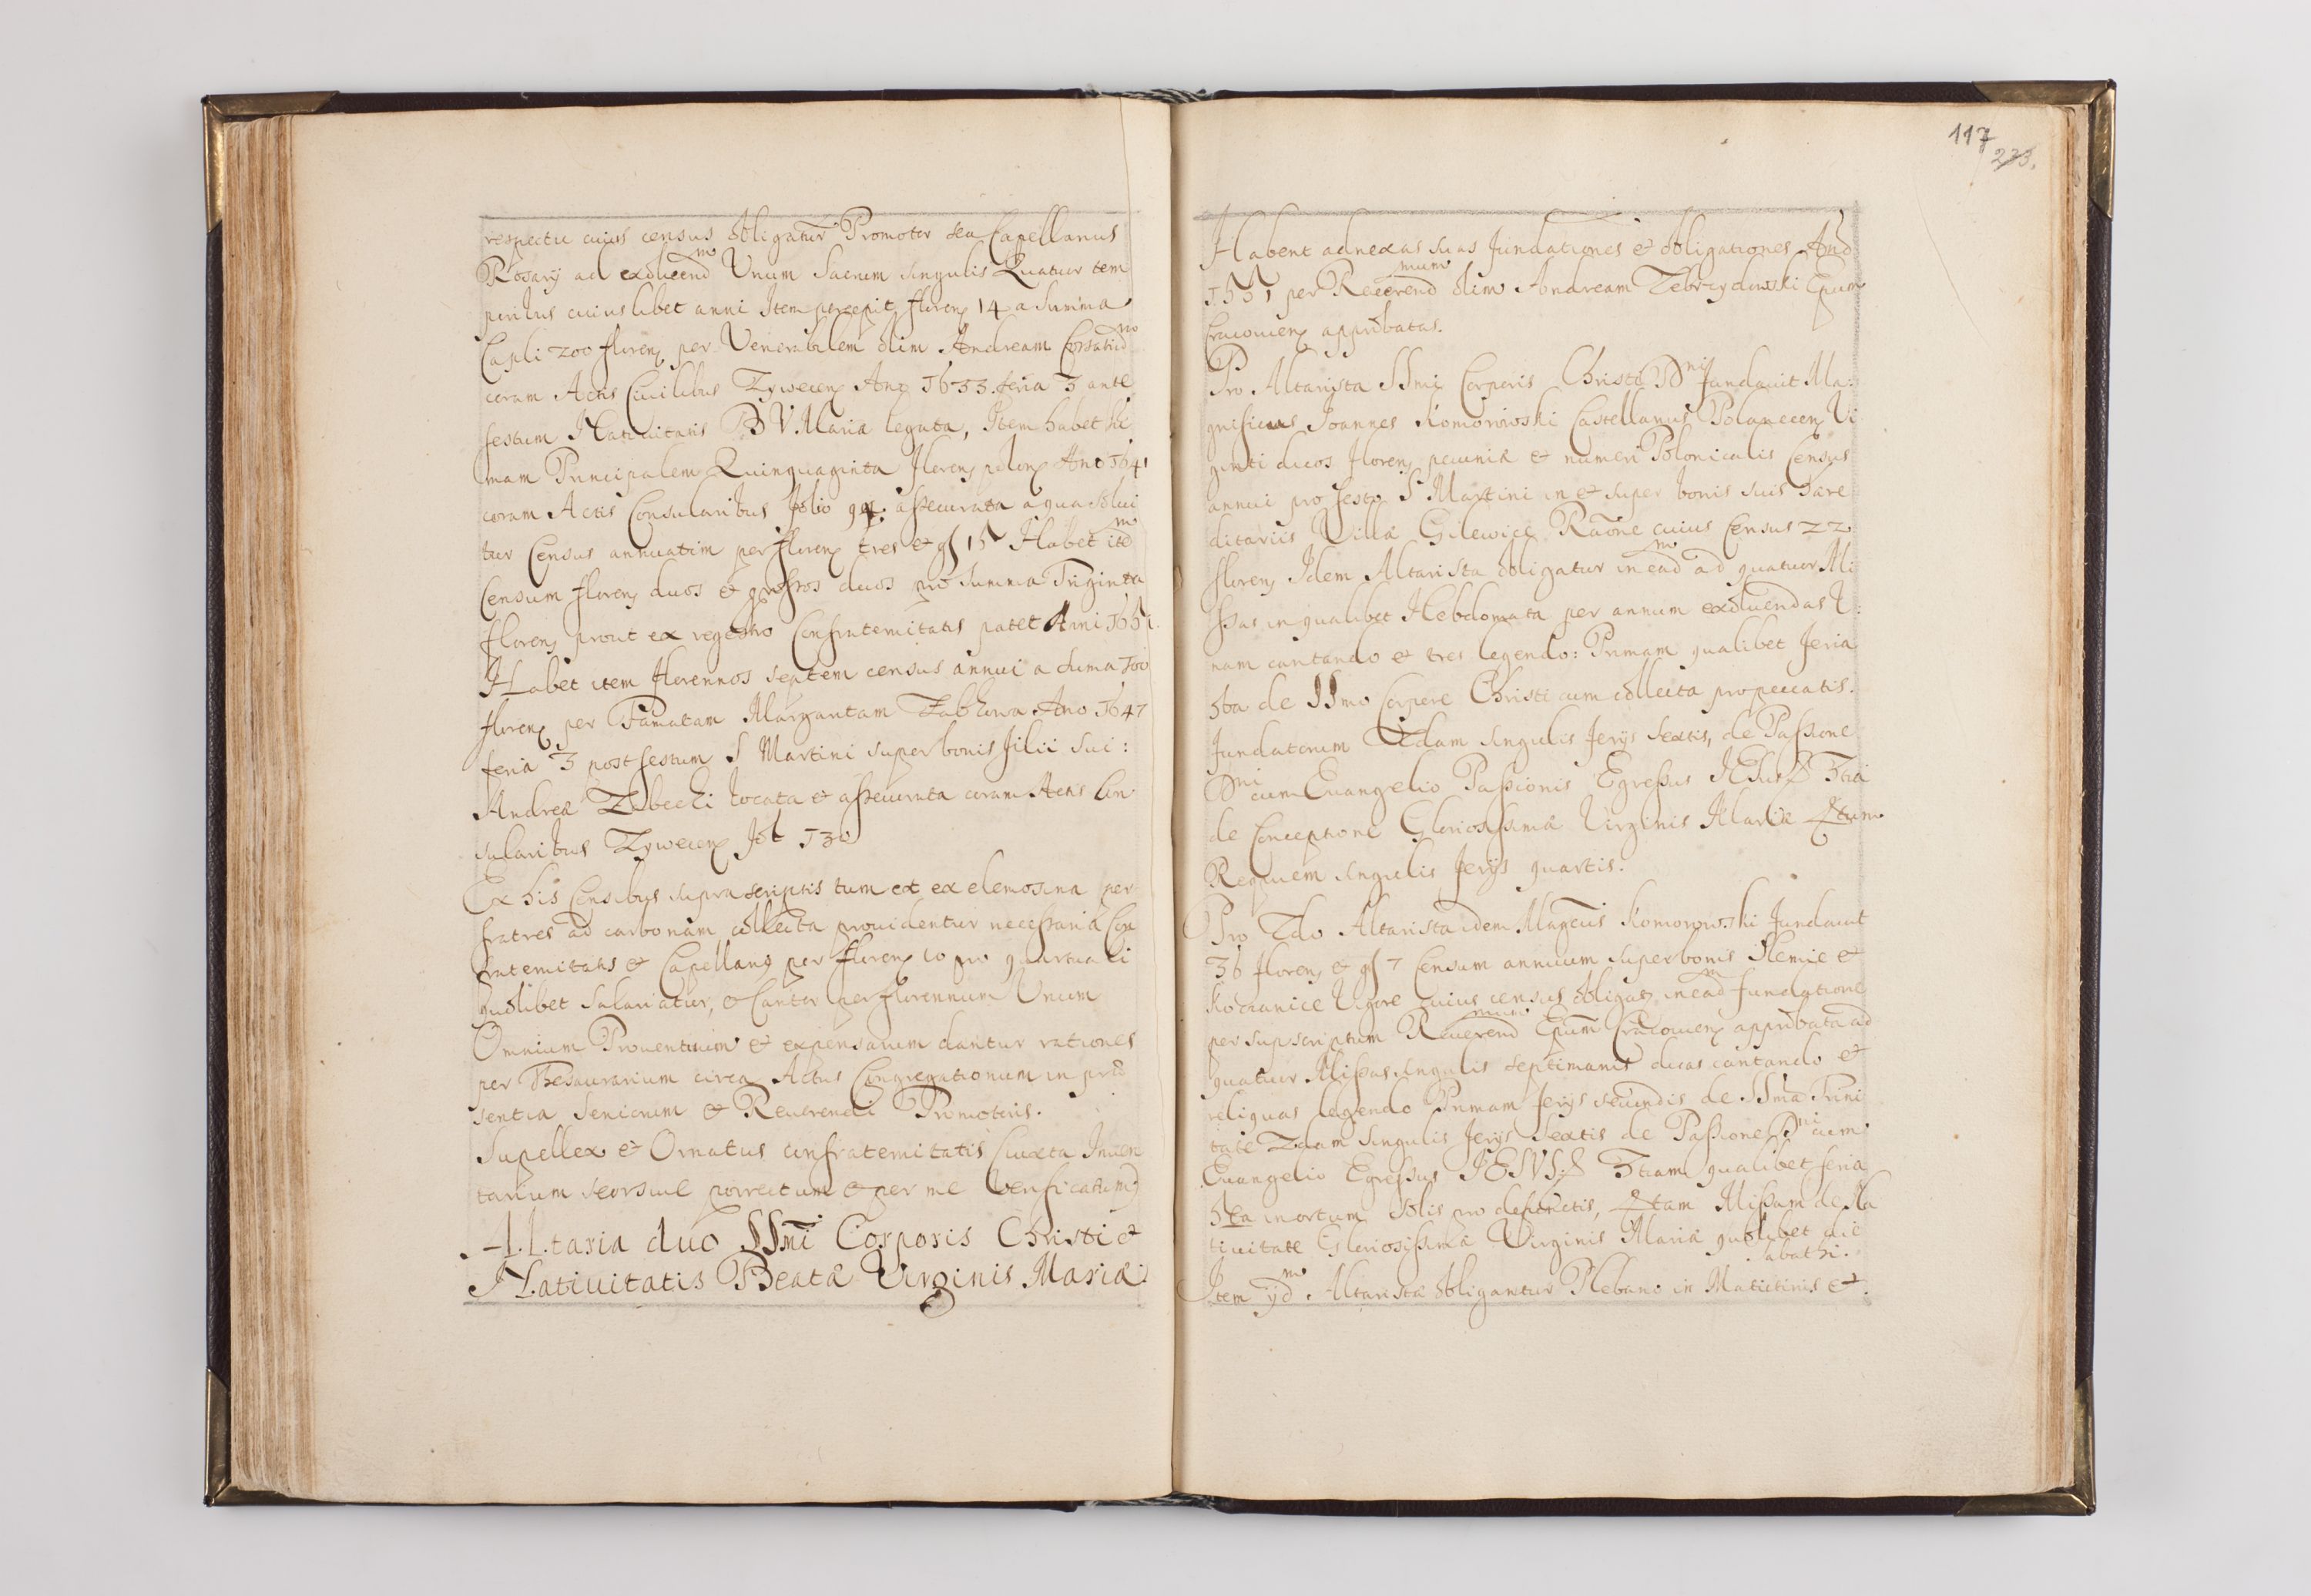 respectu cuius census obligatur Promotor seu Capellanus
Rosarij ad exolvend m Unum Sacrum singulis Quatuor tem
poribus cuius libet anni Item percepit floren 14 a Summa
Capli 200 floren per Venerabilem olim Andream
coram Actis Civilibus Zywecen Ano 1633. feria 3 ante
festum Nativitatis B V. Mariæ legata, Item habet
mam Principalem Quinquaginta floren polon Ano 1641
coram Actis Consularibus folio assecurata a qua solvi
tur Census annuatim per floren tres et gs 15 Habet ite m
Censum floren duos et grossos duos pro Summa Triginta
floren prout ex regestro Confraternitatis patet Anni
Habet item florennos septem census annui a suma 100
floren per Famatam Margaritam Ano 1647
feria 3 post festum S Martini super bonis filii sui:
Andreæ locata et assecurata coram Actis Con
sularibus Zywecen fol 130
Ex his Censibus supra scriptis tum et ex elemosina per
fratres ad carbonam collecta providentur necessaria Con
fraternitatis et Capellanus per floren 10 pro quartuali
quolibet salariatur, et Cantor per florennum Unum
Omnium Proventuum et expensarum dantur rationes
per Thesaurarium circa Actus Congregationum in præ
sentia Seniorum et Reverendi Promotoris.
Supellex et Ornatus confraternitatis (iuxta Inven
tarium seorsive porrectum et per me verificatum)
Altaria duo SSmi Corporis Christi et
Nativitatis Beatæ Virginis Mariæ:
117
233.
Habent adnexas suas fundationes et obligationes Ano
1551 per Reverend mum olim Andream Zebrzydowski Epum
Cracovien approbatas.
Pro Altarista SSmi Corporis Christi Dni fundavit Ma:
gnificus Joannes Komorowski Castellanus Polanecen Vi
ginti duos floren pecuniæ et numeri Polonicalis Census
annui pro festo S Martini in et super bonis suis hære
ditariis Villæ Gilewice Raône cuius Census 22
floren Idem Altarista obligatur in ead m ad quatuor Mi
ssas in qualibet Hebdomata per annum exolvendas U:
nam cantando et tres legendo: Primam qualibet feria
5ta de SSmo Corpore Christi cum collecta pro peccatis.
fundatorum 2dam singulis ferijs sextis, de Passione
Dni cum Evangelio Passionis Egressus JESUS 3tia
de Conceptione Gloriosissimæ Virginis Mariæ 4tum
Requiem singulis ferijs quartis.
Pro 2do Altarista idem Magcus Komorowski fundavit
36 floren et gs 7 Censum annuum super bonis Slemie et
Kocranice Vigore cuius census obligat in ead m fundatione
per supscriptum Reverend mum Epum Cracovien approbata ad
quatuor Missas singulis septimanis duas cantando et
reliquas legendo Primam ferijs secundis de SSma Trini
tate 2dam singulis ferijs sextis de Passione Dni cum
Evangelio Egressus JESUS: 3tiam qualibet feria
5ta in ortum solis pro defunctis, 4tam Missam de Na
tivitate Gloriosissimæ Virginis Mariæ quolibet die
Sabathi.
Item ijd m Altaristæ obligantur Plebano in Matutinis et